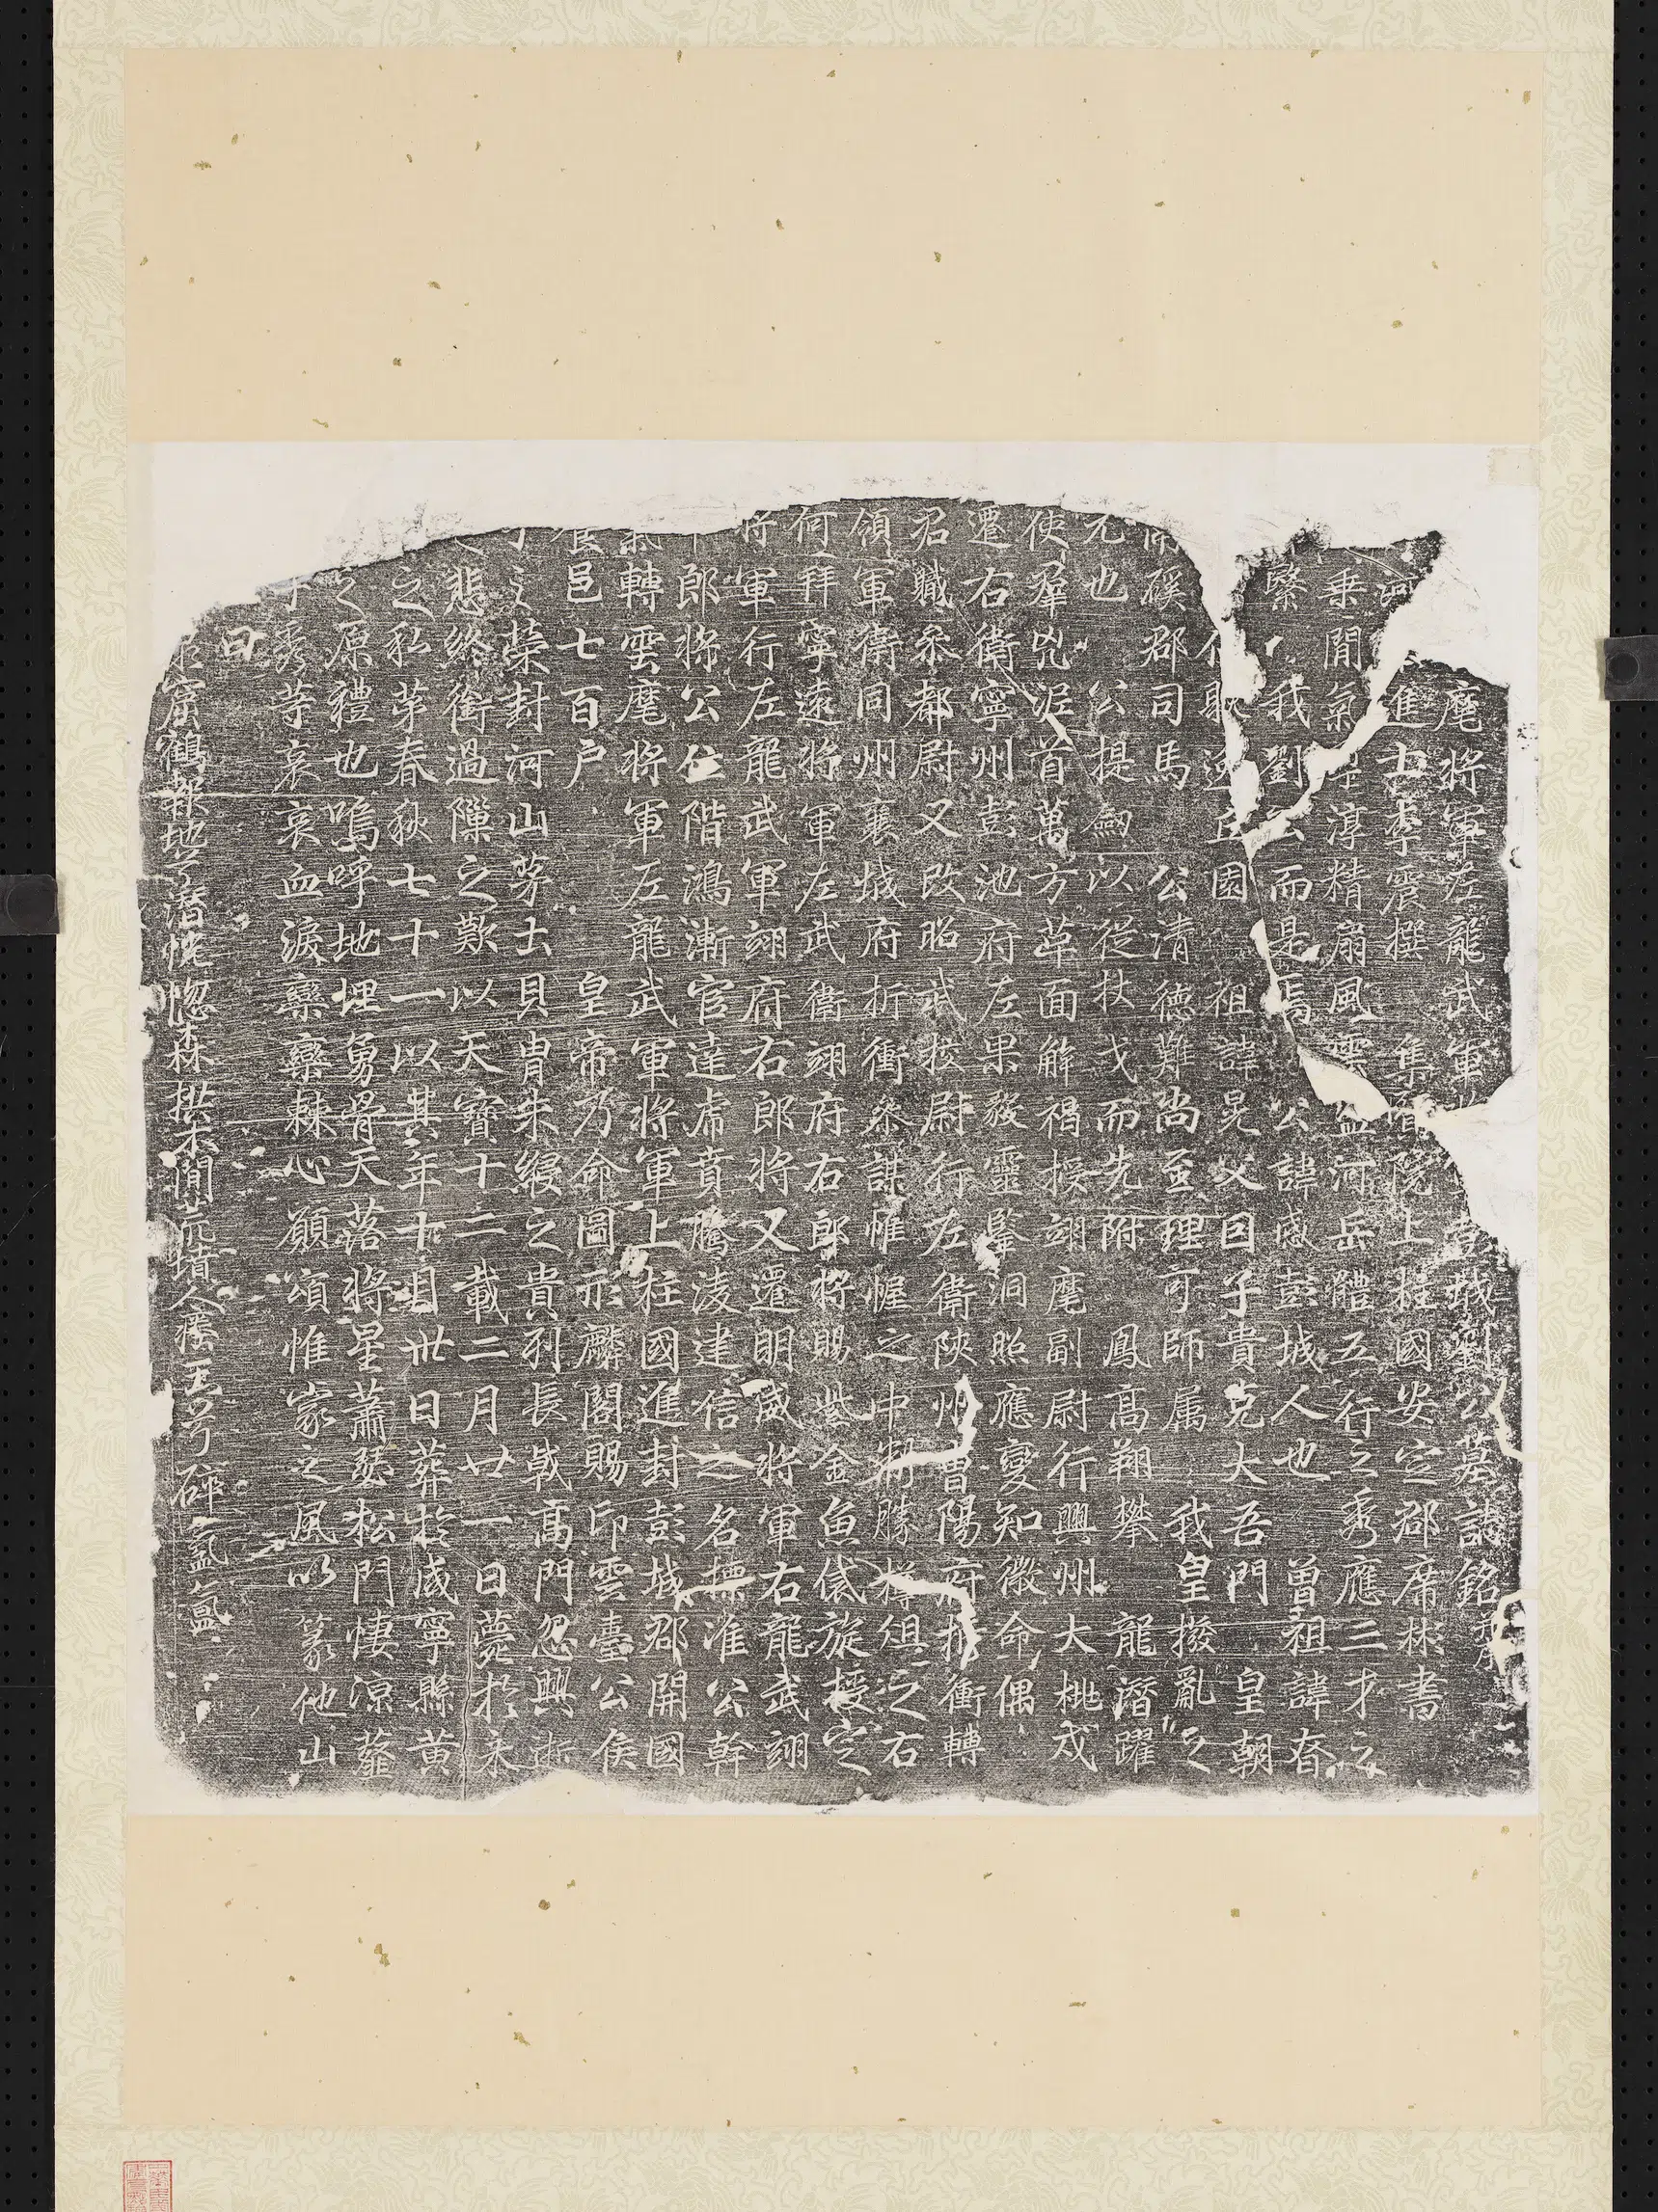 麾將軍左龍武軍 彭城劉公墓誌銘并序
進士李震撰 集賢院上柱國安定郡席林書
乘間氣 淳精扇風雲 河岳體五行之秀應三才之
繫 我劉公而是焉 公諱感彭城人也 曾祖諱奋
耿逸丘園 祖諱晃父因子貴克大吾門 皇朝
磎郡司馬 公清德難尚至理可師属 我皇撥亂之
元也 公提劒以從杖戈而先附 鳳高翔攀 龍潛躍
使羣兇泥首萬方革面解褐授翊麾副尉行興州大桃戍
遷右衛寧州彭池府左果毅靈鑒洞照應變知微命偶
君職叅都尉又改昭武校尉行左衛陝州曹陽府折衝轉
領軍衛同州襄城府折衝叅謀帷幄之中制勝樽俎之右
何拜寧遠將軍左武衛翊府右郎將賜紫金魚袋旋授定
將軍行左龍武軍翊府右郎將又遷明威將軍右龍武翊
郎將公仕階鴻漸官達虎賁騰凌建信之名操准公幹
氣轉雲麾將軍左龍武軍將軍上柱國進封彭城郡開國
食邑七百户 皇帝乃命圖形麟閣賜印雲臺公侯
榮封河山茅土貝胄朱綬之貴列長戟高門忽興逝
悲終銜過隟之歎以天寶十二載二月廿一日薨於永
之私苐春秋七十一以其年十月卅日葬於咸寧縣黄
之原禮也嗚呼地埋勇骨天落將星蕭瑟松門悽涼薤
秀等哀哀血淚欒欒棘心願頌惟家之風以篆他山
曰
窟鶴報地兮潛恍惚森拱木閒荒墳人瘞玉兮碎氤氳